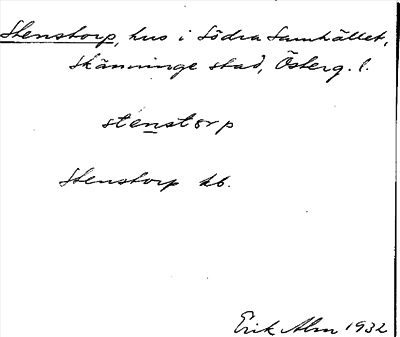 Stenstorp, hus i Södra Samhället,
Skänninge stad, Österg. l.
stenstorp
Stenstorp kb.
Erik Alm 1932